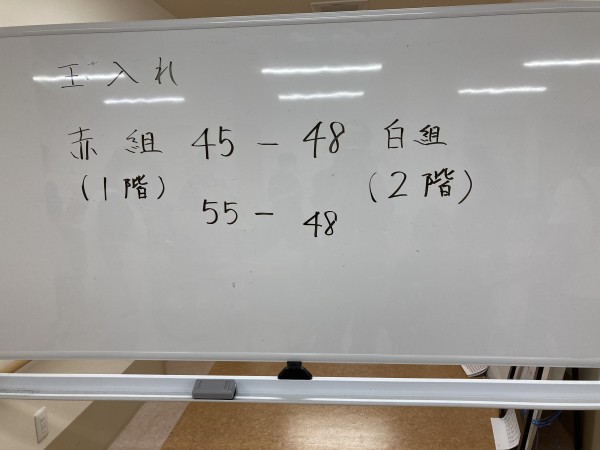 玉入れ
赤組 45 - 48 白組
(1階) (2階)
55 - 48